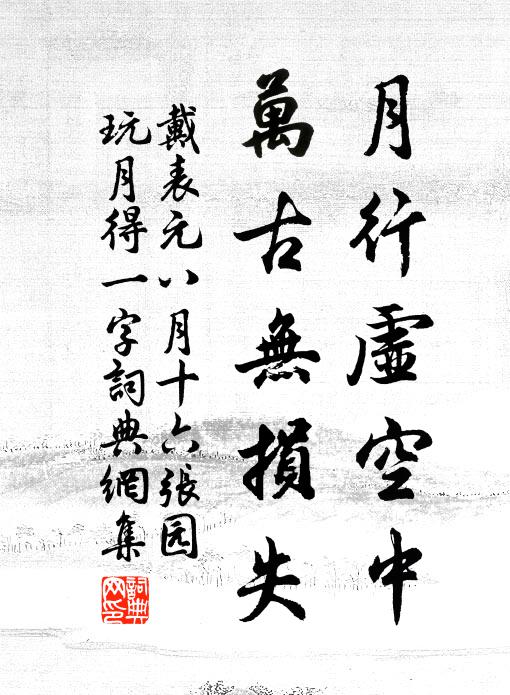 月行虛空中
萬古無損失
戴表元八月十六張园
玩月得一字詞典網集
詞典
网印